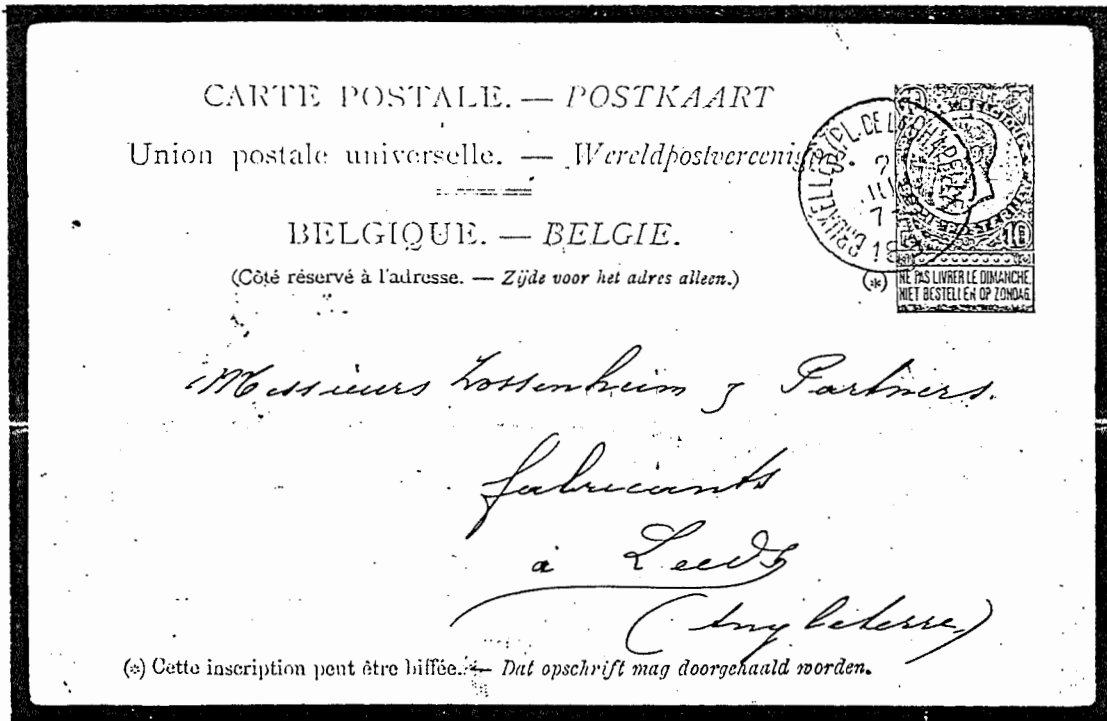 CARTE POSTALE. — POSTKAART
Union postale universelle. — Wereldpostvereenig
BELGIQUE. — BELGIE.
(Côté réservé à l'adresse. — Zijde voor het adres alleen.)
BRUXELLES (PL. DE LA CHAPELLE
2
JUI
7-
18
BELGIQUE
10
NE PAS LIVRER LE DIMANCHE.
(*) NIET BESTELLEN OP ZONDAG.
Messieurs Zossenheim & Partners.
fabricants
à Leeds
(Angleterre)
(*) Cette inscription peut être biffée. — Dat opschrift mag doorgehaald worden.